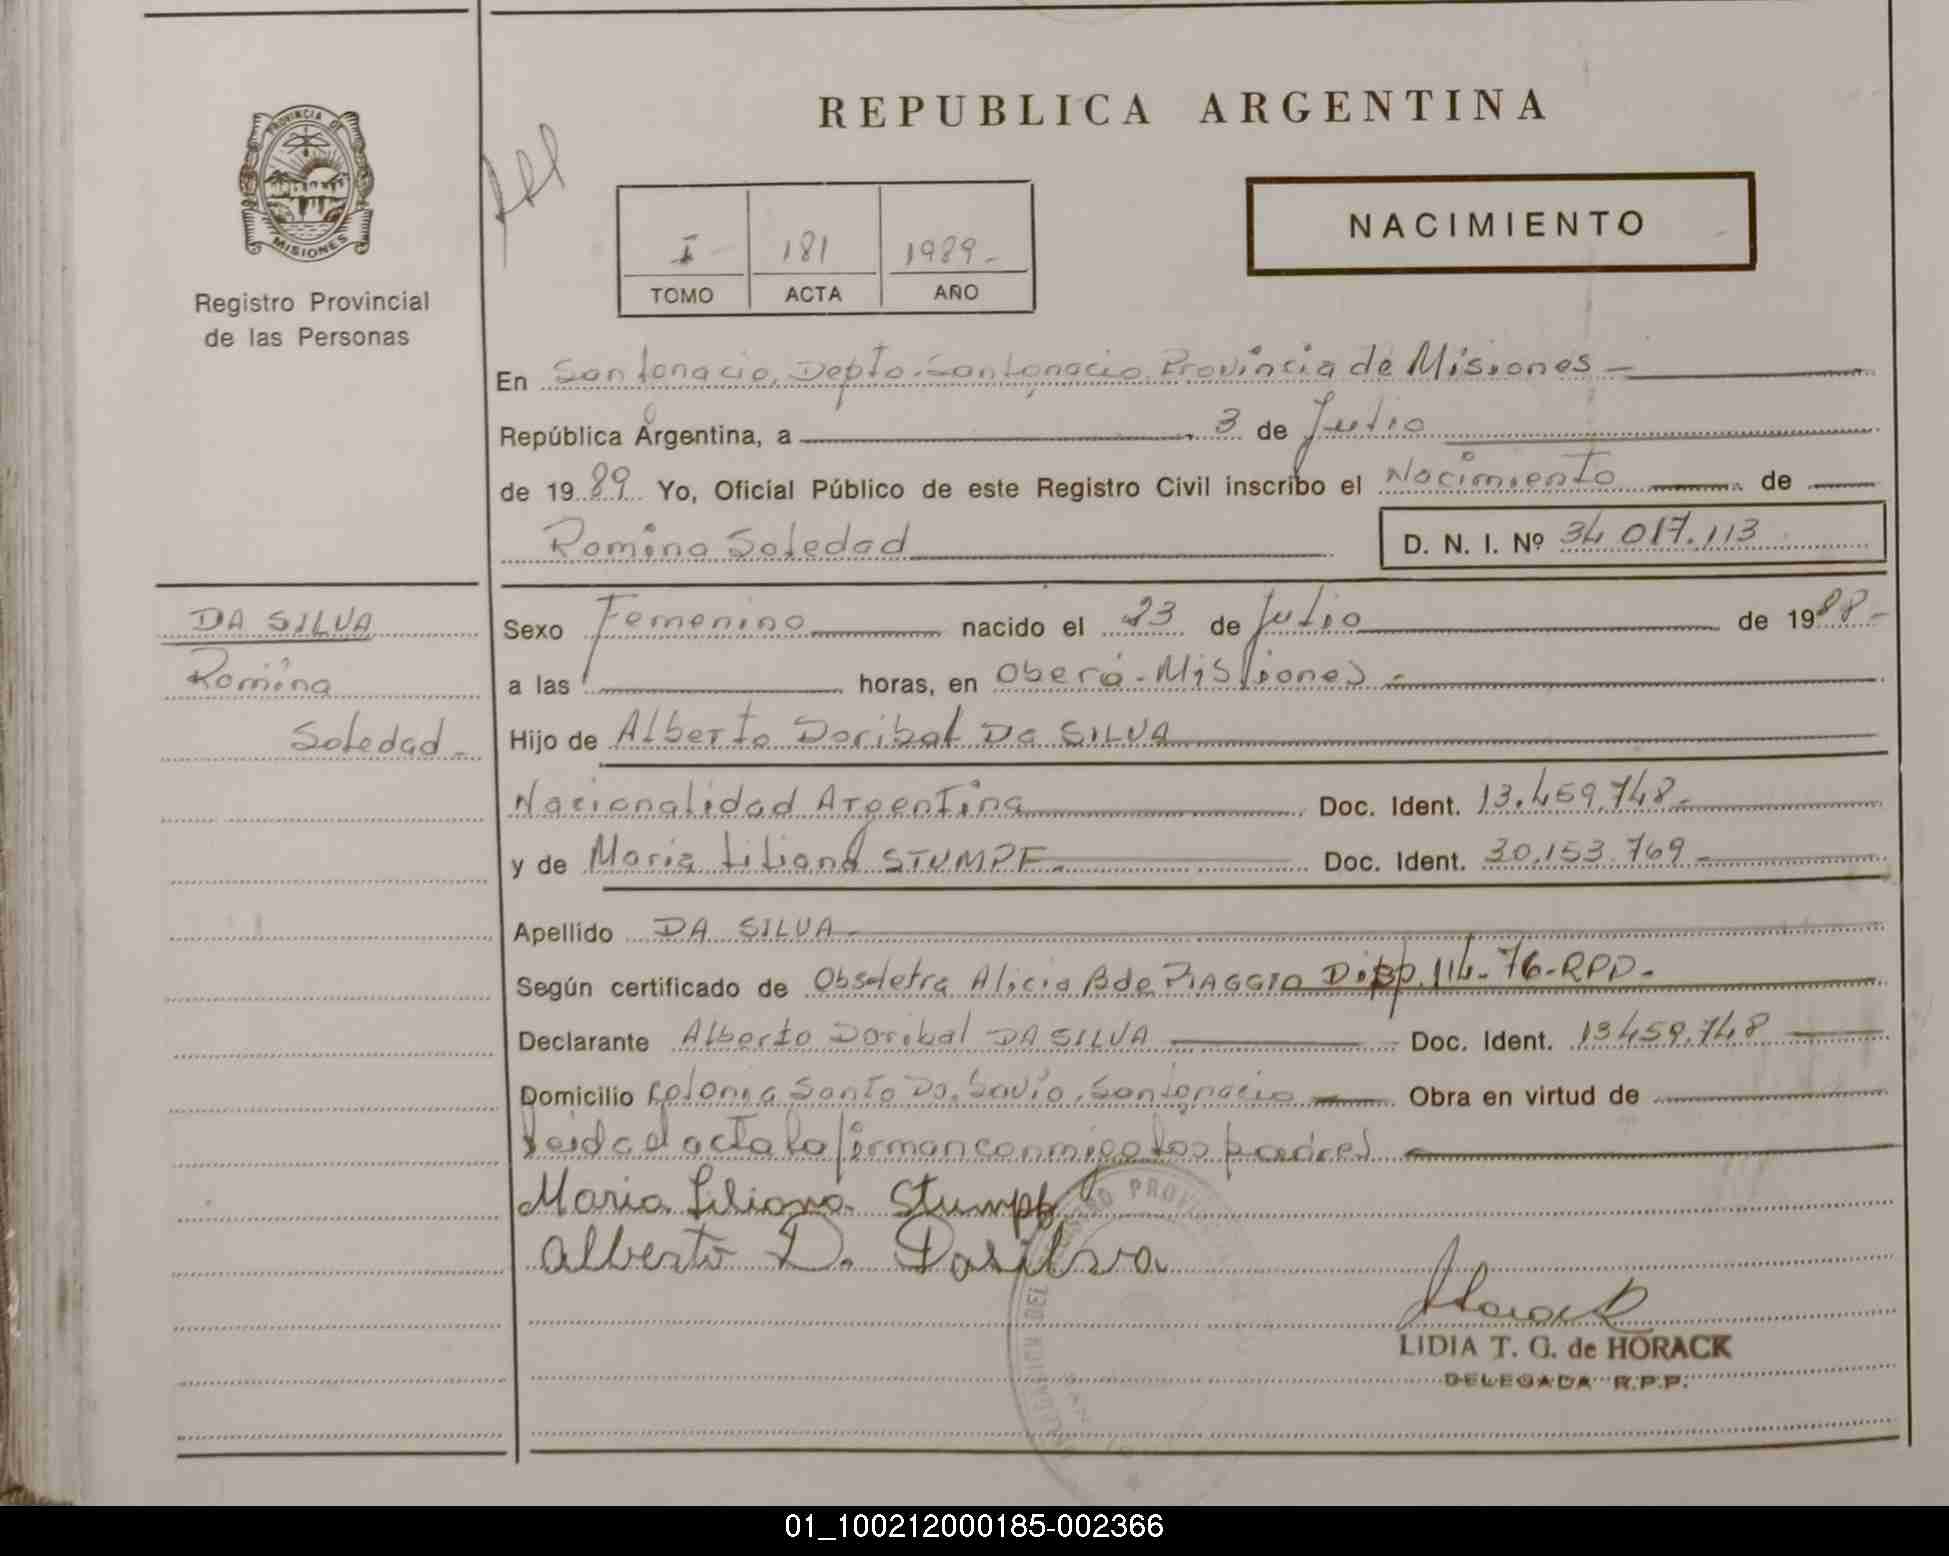 REPUBLICA ARGENTINA
PROVINCIA DE
MISIONES
Registro Provincial
de las Personas
I - 181 1989 -
TOMO ACTA AÑO
NACIMIENTO
En San Ignacio, Depto. San Ignacio Provincia de Misiones
República Argentina, a 3 de Julio
de 1989 Yo, Oficial Público de este Registro Civil inscribo el Nacimiento de
Romina Soledad
D. N. I. Nº 34.017.113
DA SILVA
Romina
Soledad -
Sexo Femenino nacido el 23 de Julio de 1988-
a las horas, en Oberá - Misiones -
Hijo de Alberto Doribal Da SILVA
Nacionalidad Argentina Doc. Ident. 13.459.748-
y de Maria Liliana STUMPF Doc. Ident. 30.153.769 -
Apellido DA SILVA -
Según certificado de Obstetra Alicia B de PIAGGIO Disp. 114-76-RPP-
Declarante Alberto Doribal DA SILVA Doc. Ident. 13459.748
Domicilio Colonia Santo Do. Savio, San Ignacio Obra en virtud de
Leida el acta la firman conmigo los padres
Maria Liliana Stumpf
Alberto D. Dasilva
LIDIA T. G. de HORACK
DELEGADA R.P.P.
01_100212000185-002366